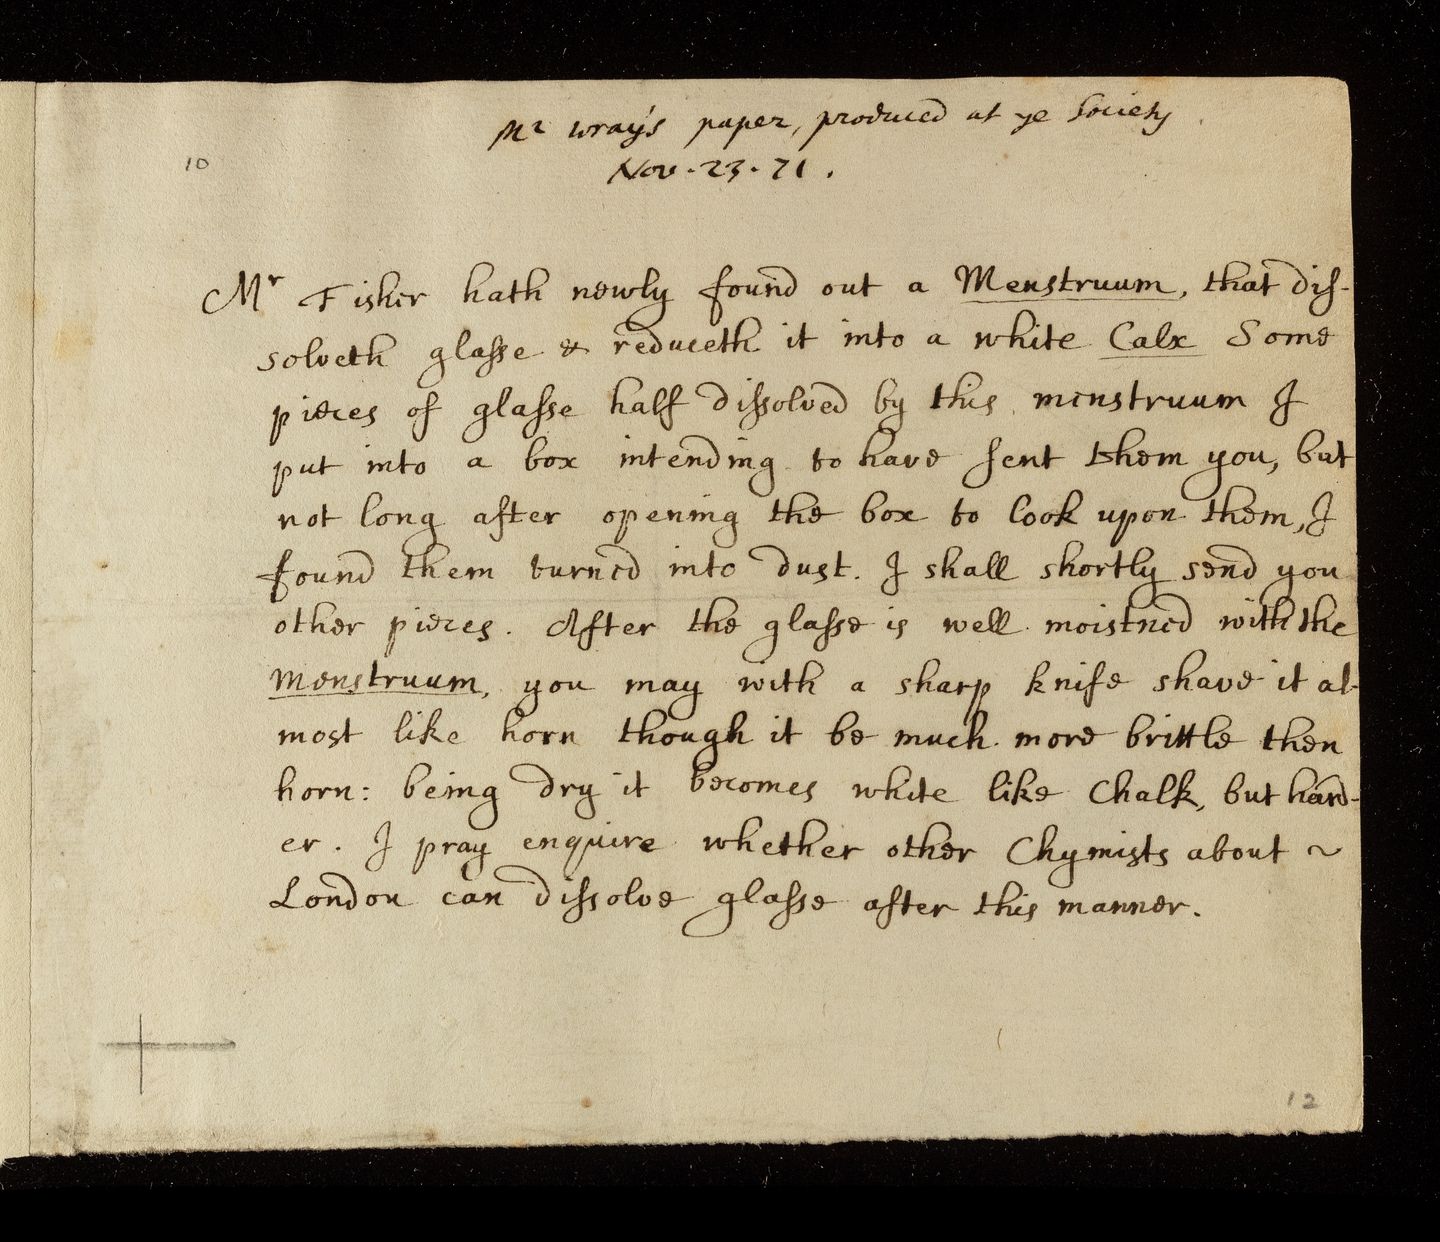 Mr wray's paper, produced at ye Society
10
Nov. 23. 71.
Mr Fisher hath newly found out a Menstruum, that dis-
solveth glasse & reduceth it into a white Calx Some
pieces of glasse half dissolved by this menstruum I
put into a box intending to have sent them you, but
not long after opening the box to look upon them, I
found them turned into dust. I shall shortly send you
other pieces. After the glasse is well moistned with the
Menstruum, you may with a sharp knife shave it al-
most like horn though it be much more brittle then
horn: being dry it becomes white like Chalk, but hard-
er. I pray enquire whether other Chymists about ~
London can dissolve glasse after this manner.
12